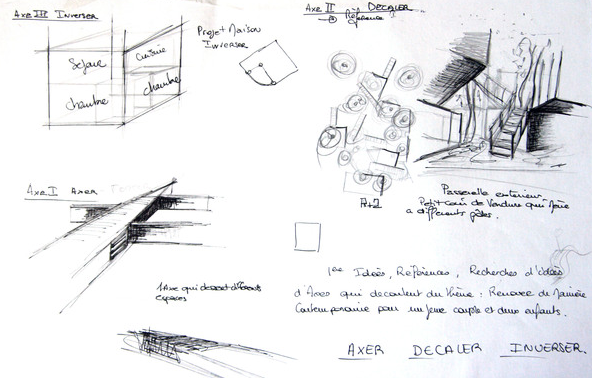 Axe III Inverser
Séjour
Cuisine
chambre
chambre
Projet Maison
Inverser
Axe II DECALER
Référence
R+2
Passerelle exterieur.
Petit coin de Verdure qui mène
a differents pôles.
Axe I AXER
1 Axe qui dessert différents
espaces
1ere Idées, Références, Recherches d'idées
d'Axes qui decoulent du thème : Renover de Manière
Contemporaine pour un jeune couple et deux enfants.
AXER DECALER INVERSER.